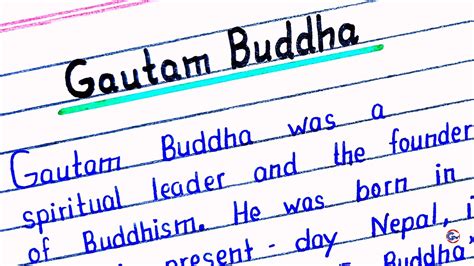 Gautam Buddha
Gautam Buddha was a
spiritual leader and the founder
of Buddhism. He was born in
present-day Nepal, i
Buddha